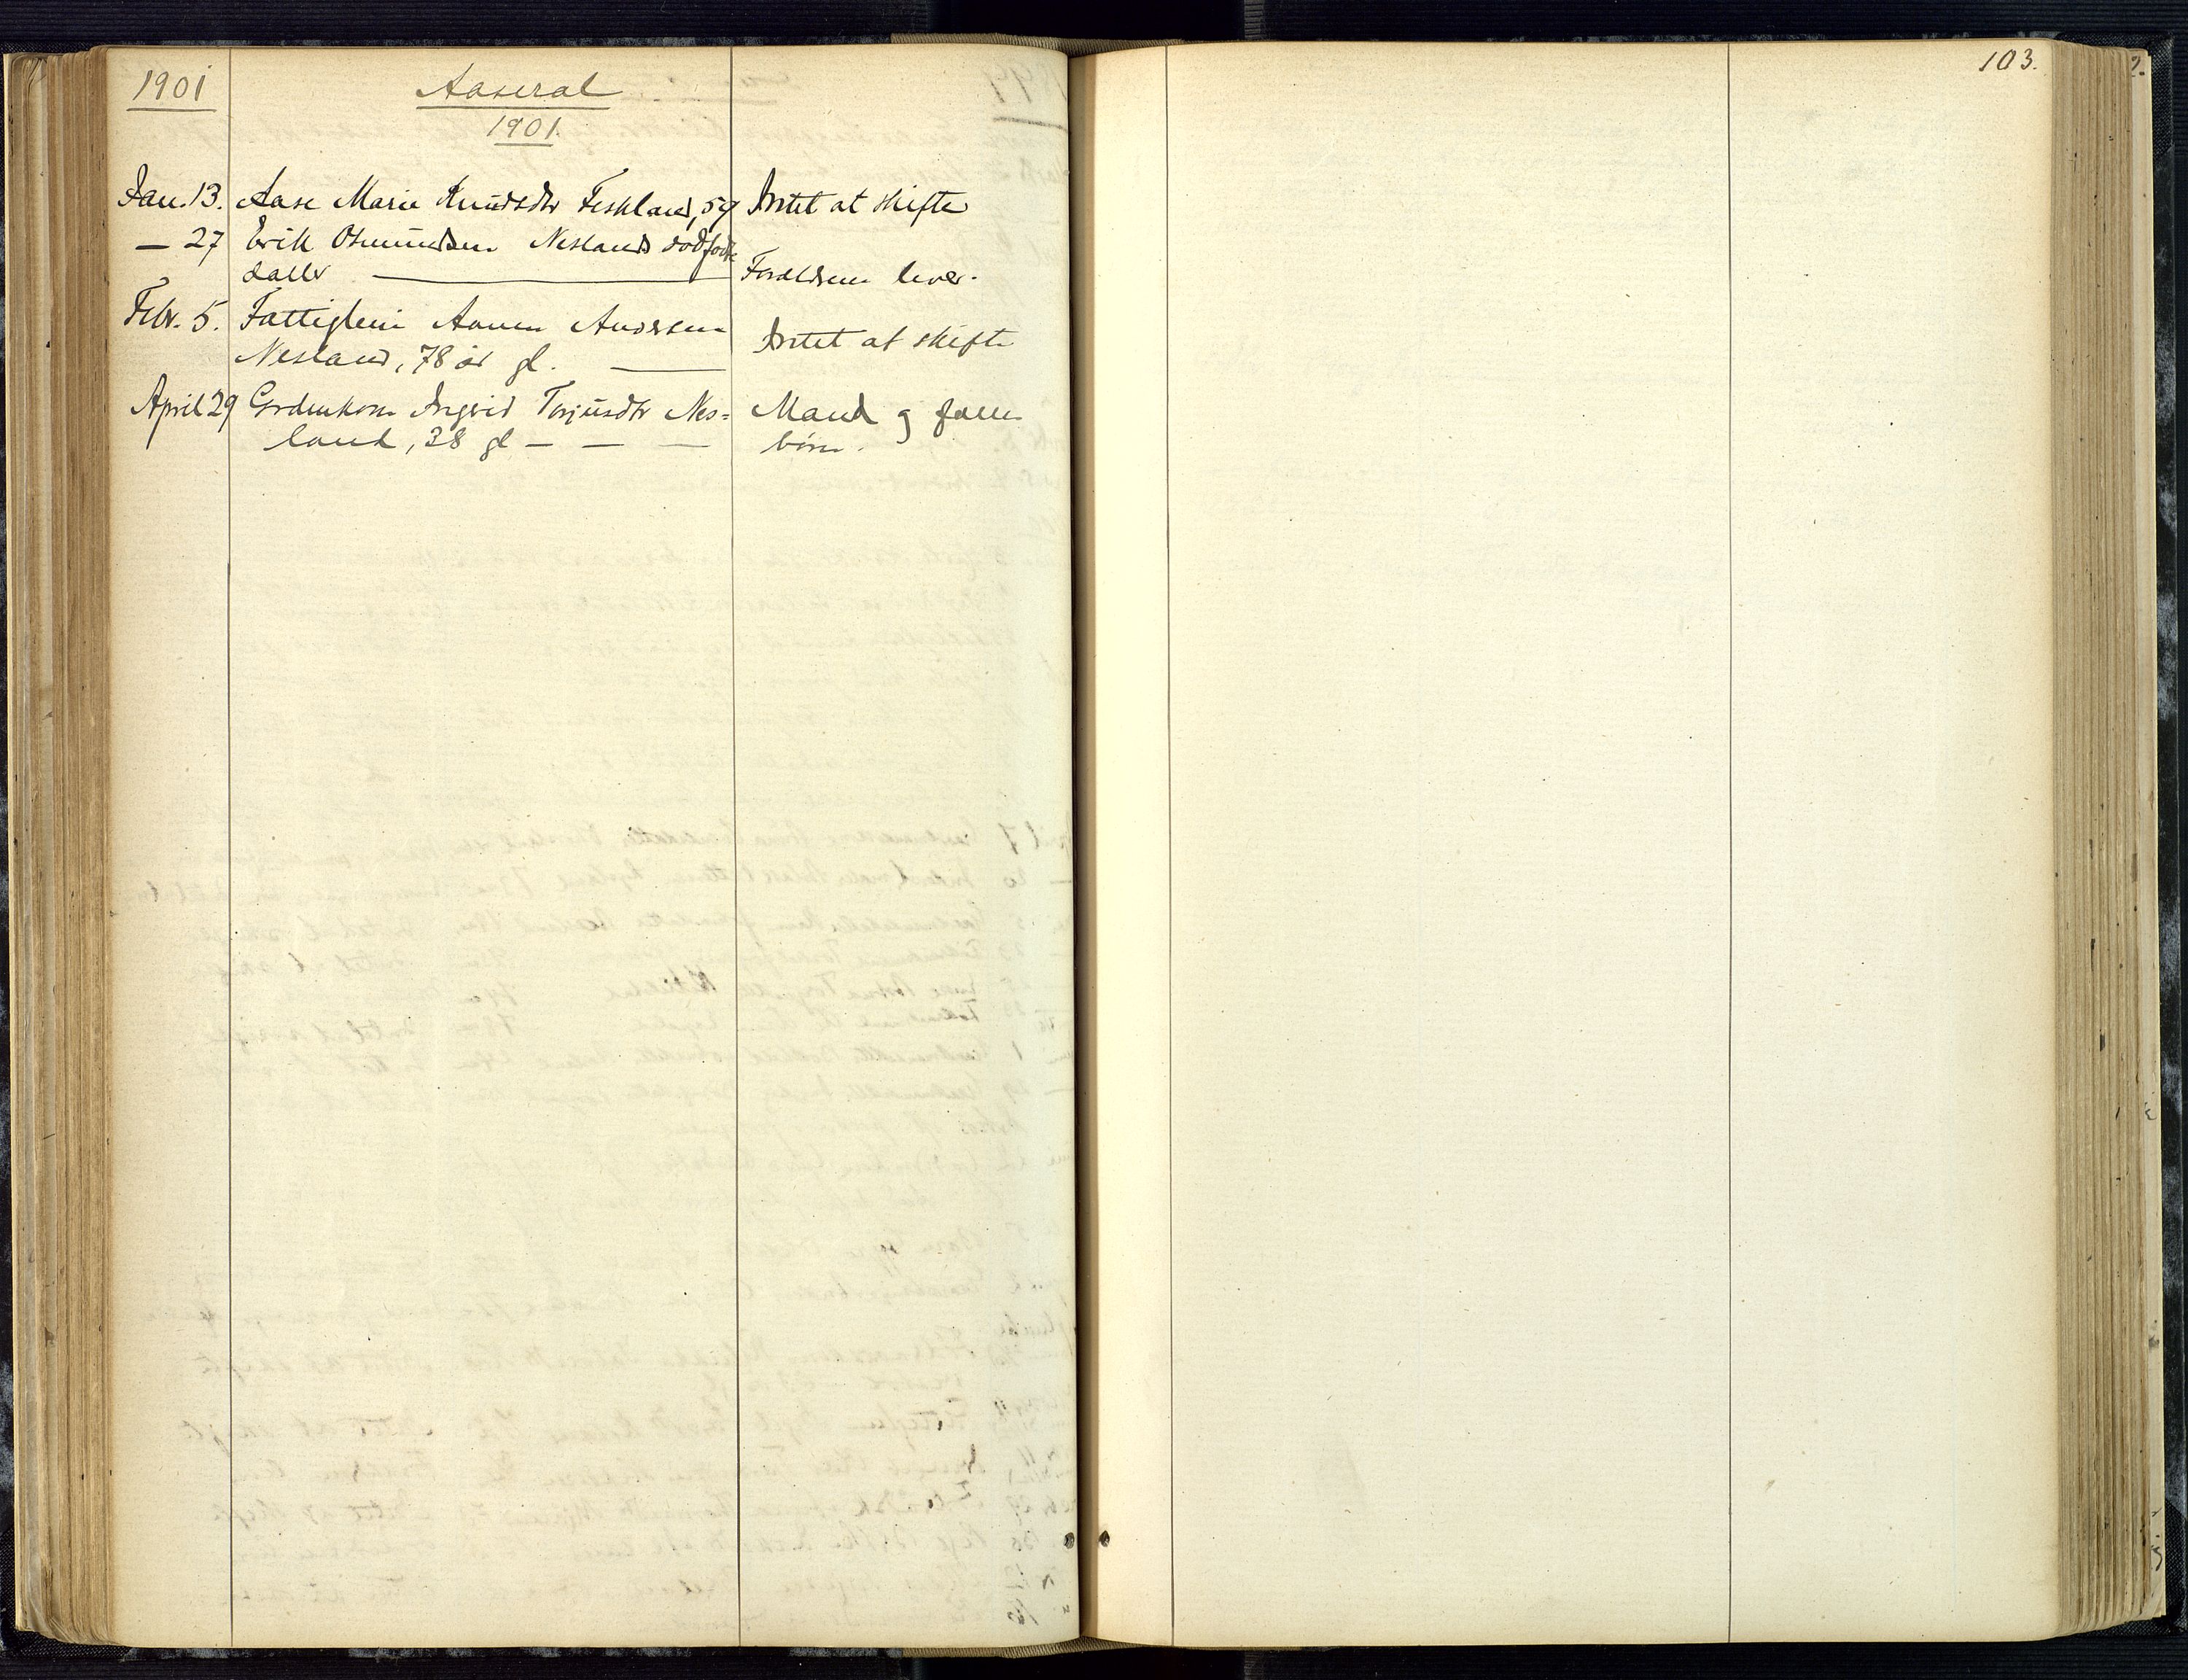 1901 Aaseral
1901.
Jan. 13. Aase Marie Knudsdtr Feskland, 59 Intet at skifte
— 27 Erik Osmundsen Neslands dødfødte
datter Forældrene lever.
Febr. 5. Fattiglem Aanen Andersen
Nesland, 78 år gl. Intet at skifte
April 29 Gardmkone Ingrid Torjusdtr Nes=
land, 38 gl — — — Mand og fælles
børn.
103.